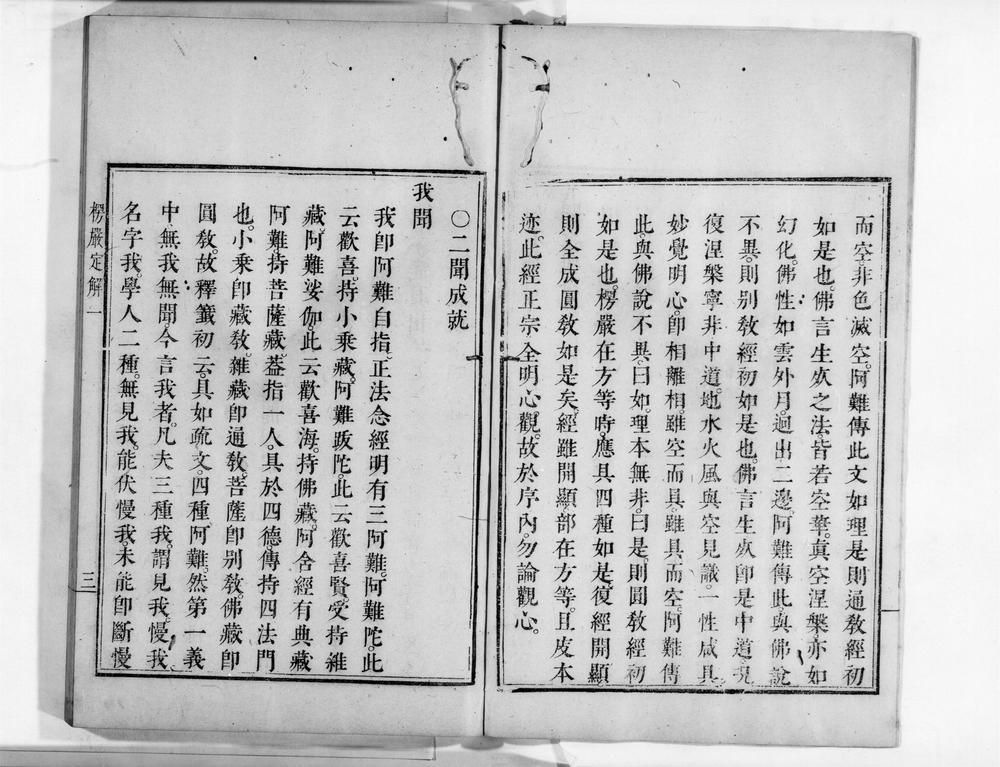 而空。非色滅空。阿難傳此文如理是則通敎經初
如是也。佛言生死之法。皆若空華。眞空涅槃亦如
幻化。佛性如雲外月。迥出二邊。阿難傳此。與佛說
不異。則别敎經初如是也。佛言生死卽是中道。現
復涅槃寧非中道。地水火風與空見識。一性咸具
妙覺明心。卽相離相。雖空而具。雖具而空。阿難傳
此。與佛說不異。曰如。理本無非。曰是。則圓敎經初
如是也。楞嚴在方等時應具四種如是。復經開顯
則全成圓敎如是矣。經雖開顯部在方等。且皮本
迹。此經正宗全明心觀。故於序內。勿論觀心。
〇二聞成就
我聞
我卽阿難自指。正法念經明有三阿難。阿難陀。此
云歡喜。持小乘藏。阿難跋陀。此云歡喜賢。受持雜
藏。阿難娑伽。此云歡喜海。持佛藏。阿舍經有典藏
阿難。持菩薩藏。葢指一人。具於四德傳持四法門
也。小乘卽藏敎。雜藏卽通敎。菩薩卽别敎。佛藏卽
圓敎。故釋籤初云。具如疏文。四種阿難。然第一義
中無我無聞。今言我者。凡夫三種我。謂見我。慢我
名字我。學人二種。無見我。能伏慢我未能卽斷慢
楞嚴定解一
三